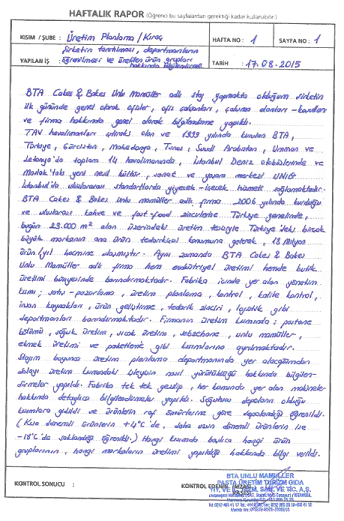 HAFTALIK RAPOR (Öğrenci bu sayfalardan gerektiği kadar kullanabilir.)
KISIM / ŞUBE : Üretim Planlama / Kıraç
HAFTA NO : 1
SAYFA NO : 1
YAPILAN İŞ :
Şirketin tanıtılması, departmanların
öğrenilmesi ve üretilen ürün grupları
hakkında bilgilendirme
TARİH : 17.08.2015
BTA Cakes & Bakes Unlu Mamüller adlı staj yapmakta olduğum şirketin
ilk gününde genel olarak ofisler, ofis çalışanları, çalışma alanları
ve firma hakkında genel olarak bilgilendirme yapıldı.
TAV havalimanları iştiraki olan ve 1999 yılında kurulan BTA,
Türkiye, Gürcistan, Makedonya, Tunus, Suudi Arabistan, Umman ve
Letonya'da toplam 14 havalimanında, İstanbul Deniz otobüslerinde ve
yeni nesil kültür, sanat ve yaşam merkezi UNIQ
İstanbul'da uluslararası standartlarda yiyecek-içecek hizmeti sağlamaktadır.
BTA Cakes & Bakes Unlu Mamüller adlı firma 2006 yılında kurduğu
ve uluslararası kahve ve fast-food zincirlerine Türkiye genelinde,
bugün 23.000 m² alan üzerindeki üretim tesisiyle Türkiye'deki birçok
büyük markanın ana ürün tedarikçisi konumuna gelerek, 18 Milyon
ürün/yıl hacmine ulaşmıştır. Aynı zamanda BTA Cakes & Bakes
Unlu Mamüller adlı firma hem endüstriyel üretimi hemde butik
üretimi bünyesinde barındırmaktadır. Fabrika içinde yer alan yönetim
kısmı; satış-pazarlama, üretim planlama, kontrol, kalite kontrol,
insan kaynakları, ürün geliştirme, tedarik zinciri, lojistik gibi
departmanları barındırmaktadır. Firmanın üretim kısmında; pastane
bölümü, soğuk üretim, sıcak üretim, sebzehane, unlu mamüller,
ekmek üretimi ve paketleme gibi kısımlarına ayrılmaktadır.
Stajım boyunca üretim planlama departmanında yer alacağımdan
dolayı üretim kısmındaki işleyişin nasıl yürütüldüğü hakkında bilgilen-
dirmeler yapıldı. Fabrika tek tek gezilip, her kısımda yer alan makineler
hakkında detaylıca bilgilendirmeler yapıldı. Soğutucu depoların olduğu
kısımlara gidildi ve ürünlerin raf ömürlerine göre depolandığı öğrenildi.
(Kısa dönemli ürünlerin +4°C'de, daha uzun dönemli ürünlerin ise
-18°C'de saklandığı öğrenildi.) Hangi kısımda başlıca hangi ürün
gruplarının, hangi markaların üretimi yapıldığı hakkında bilgi verildi.
KONTROL SONUCU :
KONTROL EDENİN İMZASI
BTA UNLU MAMÜLLER
PASTA ÜRETİM TURİZM GIDA